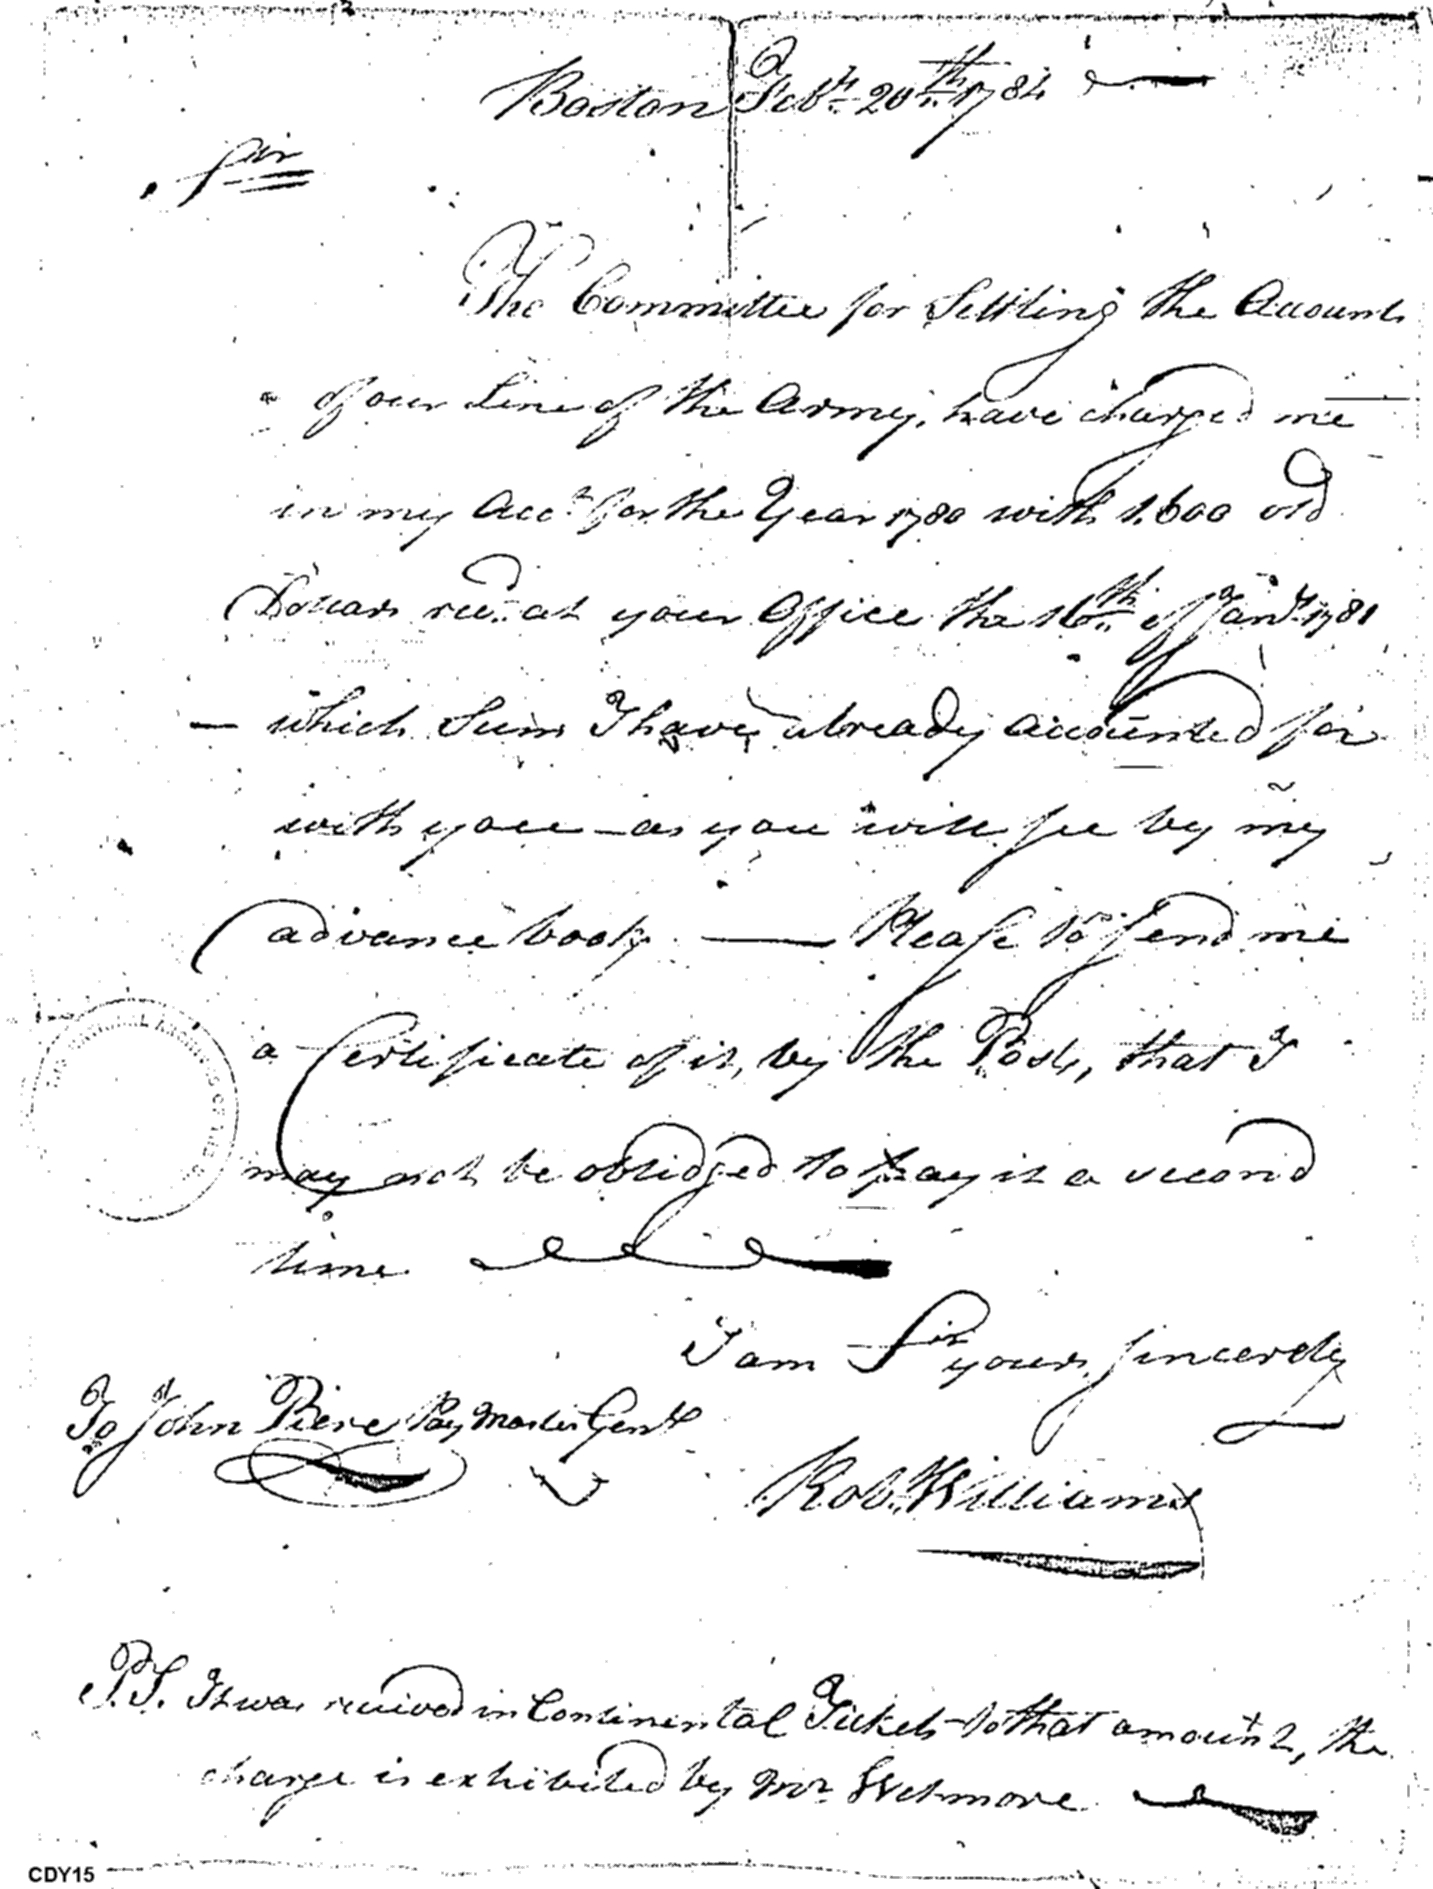 Boston Feb.y 20th 1784
Sir
The Committee for Settling the Accounts
of our Line of the Army, have charged me
in my Acct. for the Year 1780 with 1.600 old
Dollars recd. at your Office the 16th of Jany. 1781
— which Sum I have already accounted for
with you — as you will see by my
advance book. — Please to send me
a Certificate of it, by the Post, that I
may not be oblidged to pay it a second
time
I am Sir yours, sincerely
To John Piere Pay Master Genl.
Rob. Williams
P.S. It was received in Continental Tickets to that amount, the
charge is exhibited by Mr. Wetmore
THE NATIONAL ARCHIVES OF THE U.S.
CDY15